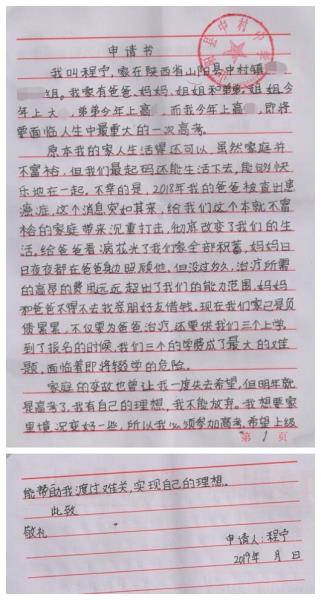 申请书
我叫程宁,家在陕西省山阳县中村镇
组。我家有爸爸、妈妈、姐姐和弟弟,姐姐今
年上大,弟弟今年上高,而我今年上高,即将
要面临人生中最重大的一次高考。
原本我的家人生活得还可以,虽然家庭并
不富裕,但我们最起码还能生活下去,能够快
乐地在一起,不幸的是,2018年我的爸爸检查出患
癌症,这个消息突如其来,给我们这个本就不富
裕的家庭带来沉重打击,彻底改变了我们的生
活。给爸爸看病花光了我们家全部积蓄,妈妈日
日夜夜都在爸爸身边照顾他。但没过多久,治疗所需
的高昂的费用远远超出了我们的能力范围,妈妈
和爸爸不得不去找亲朋好友借钱。现在我们家已是负
债累累,不仅要为爸爸治疗,还要供我们三个上学,
到了报名的时候,我们三个的学费成了最大的难
题,面临着即将辍学的危险。
家庭的变故也曾让我一度失去希望,但明年就
是高考了,我有自己的理想,我不能放弃。我想要家
里境况变好一些,所以我必须参加高考,希望上级
第1页
能帮助我渡过难关,实现自己的理想。
此致
敬礼
申请人:程宁
2019年 月 日